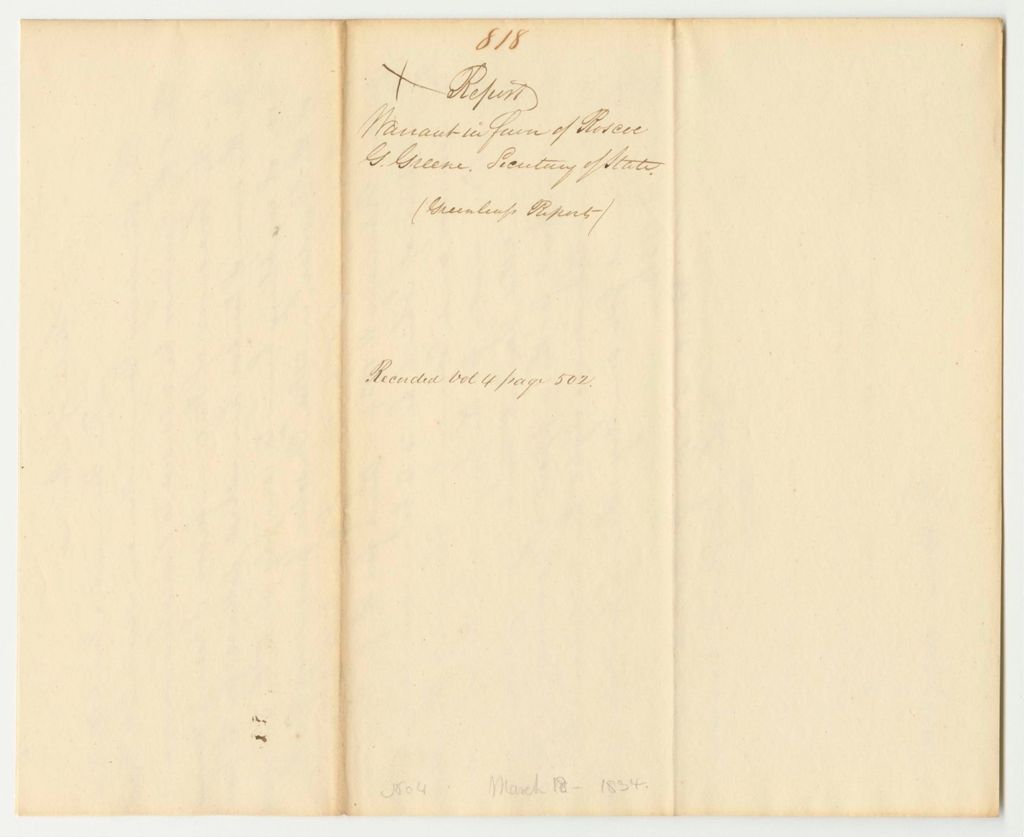 818
Report
Warrant in favor of Roscoe
G. Greene. Secretary of State.
(Greenleafs Reports)
Recorded Vol 4 page 502.
No 4 March 18 - 1834.